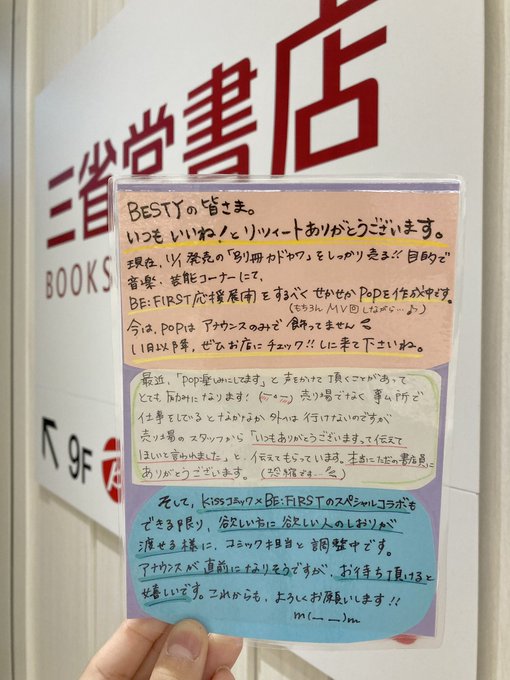 三省堂書店
BOOKS
↖ 9F
BESTYの皆さま。
いつも いいね!と リツイートありがとうございます。
現在、11/1 発売の「別冊カドカワ」をしっかり売る!! 目的で
音楽・芸能コーナーにて、
BE:FIRST応援展開をするべく せかせか POPを作成中です。
(もちろん MV回しながら…♪)
今は、POPは アナウンスのみで 飾ってません
11日以降、ぜひお店に チェック!! しに来て下さいね。
最近、「POP楽しみにしてます」と 声をかけて 頂くことがあって
とても 励みになります! 売り場でなく 事ム所で
仕事をしていると なかなか 外へは 行けないのですが
売り場の スタッフから「いつもありがとうございます。って伝えて
ほしいと言われました」と、伝えてもらっています。本当にただの書店員に
ありがとうございます。(恐縮です…)
そして、Kissコミック×BE:FIRSTのスペシャルコラボも
できる限り、欲しい方に 欲しい人のしおりが
渡せる様に、コミック担当と 調整中です。
アナウンスが 直前になりそうですが、お待ち頂けると
嬉しいです。これからも、よろしくお願いします!!
m(_ _)m